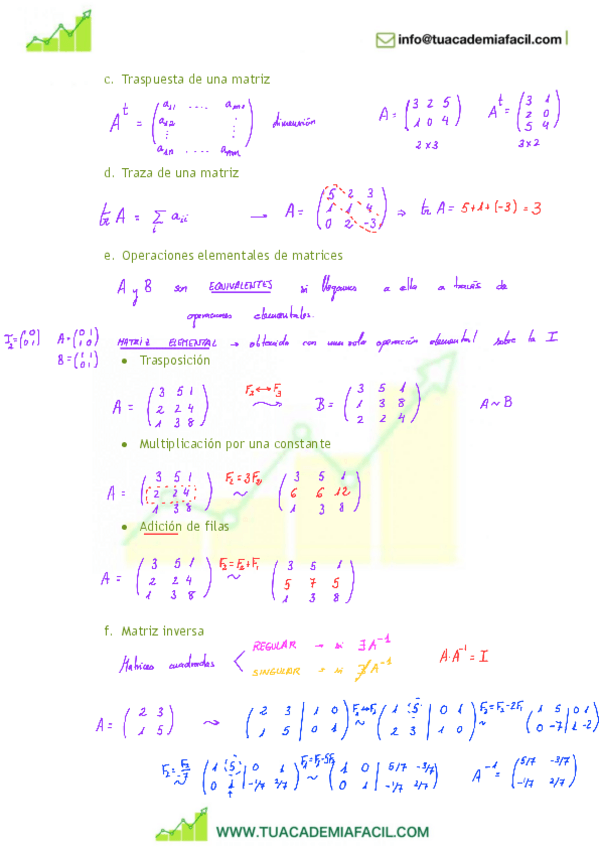 info@tuacademiafacil.com
c. Traspuesta de una matriz
A^t = ( a11 .... am1 / a12 ⋮ / ⋮ ⋮ / a1n .... amn ) dimensión A = ( 3 2 5 / 1 0 4 ) A^t = ( 3 1 / 2 0 / 5 4 )
2x3 3x2
d. Traza de una matriz
tr A = Σ_i a_ii → A = ( 5 2 3 / 1 1 4 / 0 2 -3 ) ⇒ tr A = 5+1+(-3) = 3
e. Operaciones elementales de matrices
A y B son EQUIVALENTES si llegamos a ella a través de
operaciones elementales.
I_2 = ( 1 0 / 0 1 ) A = ( 0 1 / 1 0 ) MATRIZ ELEMENTAL → obtenida con una sola operación elemental sobre la I
B = ( 1 1 / 0 1 )
• Trasposición
A = ( 3 5 1 / 2 2 4 / 1 3 8 ) F2↔F3 B = ( 3 5 1 / 1 3 8 / 2 2 4 ) A∼B
• Multiplicación por una constante
A = ( 3 5 1 / 2 2 4 / 1 3 8 ) F2=3F2 ∼ ( 3 5 1 / 6 6 12 / 1 3 8 )
• Adición de filas
A = ( 3 5 1 / 2 2 4 / 1 3 8 ) F2=F2+F1 ∼ ( 3 5 1 / 5 7 5 / 1 3 8 )
f. Matriz inversa
Matrices cuadradas < REGULAR → si ∃A^-1
SINGULAR → si ∄A^-1
A·A^-1 = I
A = ( 2 3 / 1 5 ) ⇝ ( 2 3 | 1 0 / 1 5 | 0 1 ) F1↔F2 ∼ ( 1 5 | 0 1 / 2 3 | 1 0 ) F2=F2-2F1 ∼ ( 1 5 | 0 1 / 0 -7 | 1 -2 )
F2=F2/-7 ∼ ( 1 5 | 0 1 / 0 1 | -1/7 2/7 ) F1=F1-5F2 ∼ ( 1 0 | 5/7 -3/7 / 0 1 | -1/7 2/7 ) A^-1 = ( 5/7 -3/7 / -1/7 2/7 )
WWW.TUACADEMIAFACIL.COM